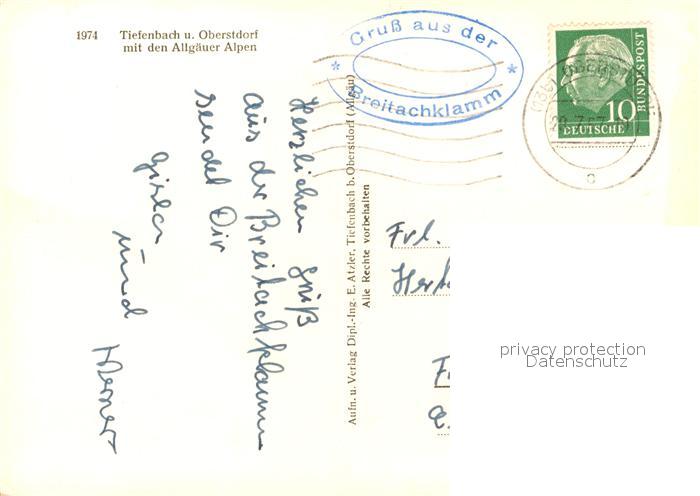 1974 Tiefenbach u. Oberstdorf
mit den Allgäuer Alpen
Gruß aus der
* *
Breitachklamm
10
DEUTSCHE
BUNDESPOST
Herzlichen Gruß
aus der Breitachklamm
sendet Dir
Gisela
und Werner
Aufn. u. Verlag Dipl.-Ing. E. Atzler, Tiefenbach b. Oberstdorf (Allgäu)
Alle Rechte vorbehalten
Frl.
privacy protection
Datenschutz